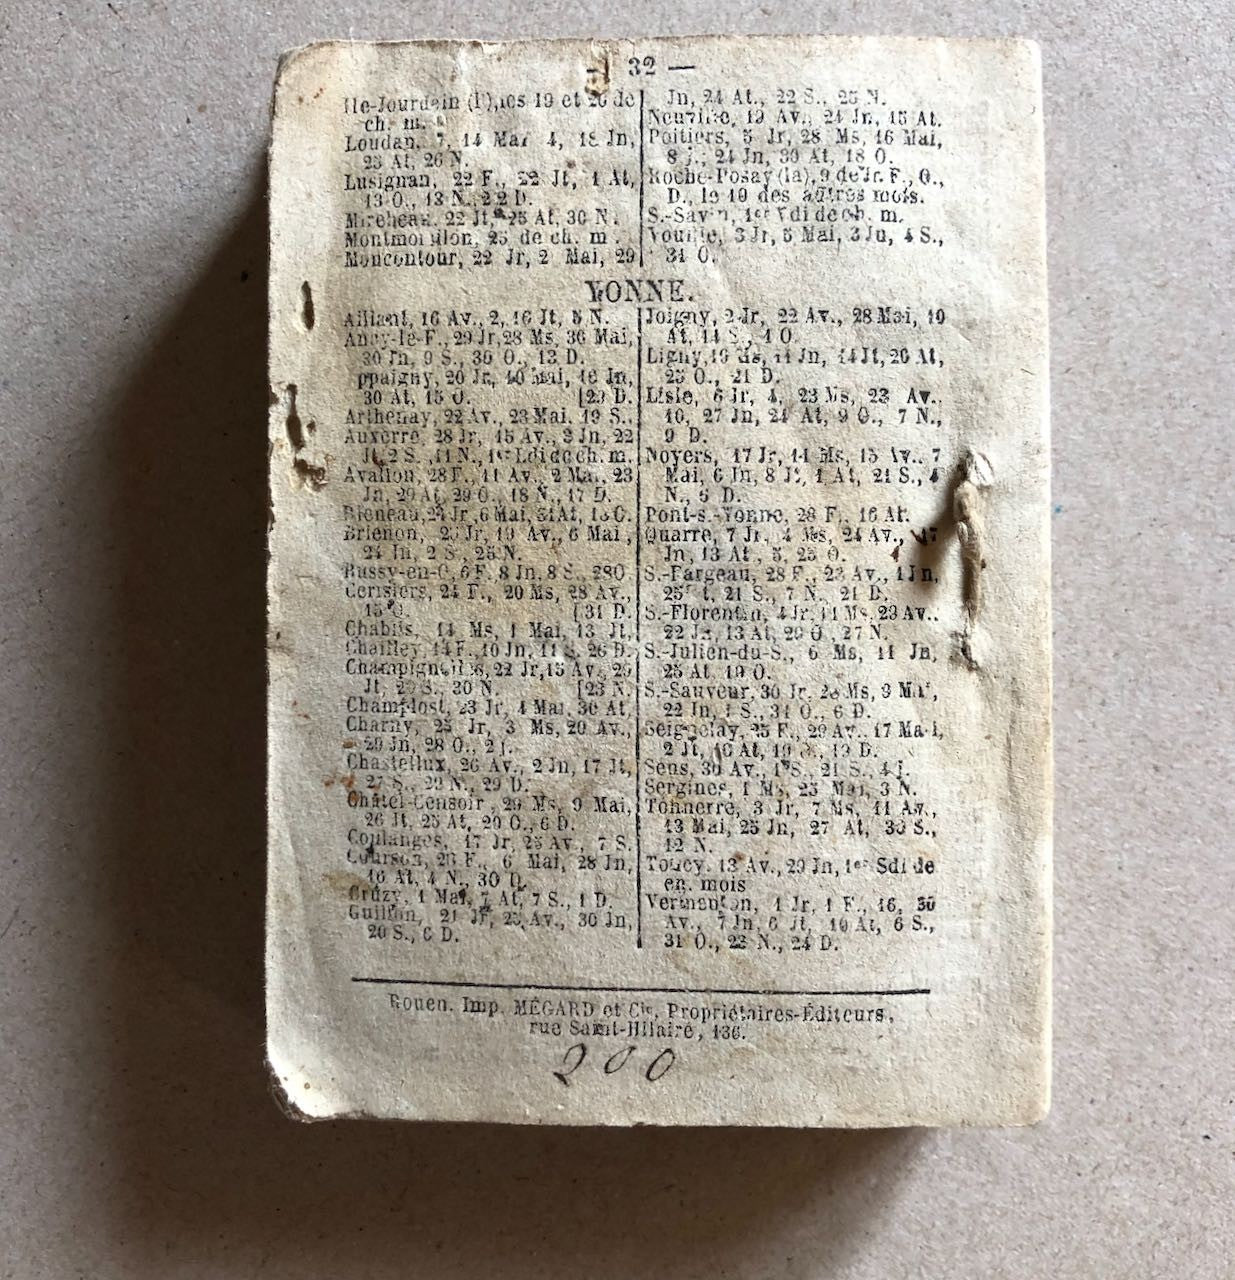 — 32 —
Ile-Jourdain (l'), les 19 et 26 de
ch. m.
Loudun, 7, 14 Mai 4, 18 Jn,
23 At, 26 N.
Lusignan, 22 F., 22 Jt, 1 At,
13 O., 13 N., 22 D.
Mirebeau, 22 Jt, 25 At, 30 N.
Montmorillon, 25 de ch. m.
Moncontour, 22 Jr, 2 Mai, 29
Jn, 24 At., 22 S., 25 N.
Neuville, 19 Av., 24 Jn, 15 At.
Poitiers, 5 Jr, 28 Ms, 16 Mai,
8 j.; 24 Jn, 30 At, 18 O.
Roche-Posay (la), 9 de Jr. F., O.,
D., 19 10 des autres mois.
S.-Savin, 1er Vdi de ch. m.
Vouillé, 3 Jr, 5 Mai, 3 Ju, 4 S.,
31 O.
YONNE.
Aillant, 16 Av., 2, 16 Jt, 5 N.
Ancy-le-F., 29 Jr, 28 Ms, 30 Mai,
30 Jn, 9 S., 30 O., 13 D.
ppoigny, 20 Jr, 10 Mai, 16 Jn,
30 At, 15 O. [29 D.
Arthenay, 22 Av., 23 Mai, 19 S.,
Auxerre, 28 Jr, 15 Av., 3 Jn, 22
Jt, 2 S., 11 N., 1er Ldi de ch. m.
Avallon, 28 F., 11 Av., 2 Mai, 23
Jn, 29 At, 29 O., 18 N., 17 D.
Bleneau, 24 Jr, 6 Mai, 31 At, 18 O.
Brienon, Jr, 19 Av., 6 Mai,
24 Jn, 2 S., 25 N.
Bussy-en-O, 6 F., 8 Jn, 8 S., 28 O.
Cerisiers, 24 F., 20 Ms, 28 Av.,
15 O. [31 D.
Chablis, 14 Ms, 1 Mai, 13 Jt,
Chailley, 14 F., 10 Jn, 11 S., 26 D.
Champignelles, 22 Jr, 15 Av., 29
Jt, S., 30 N. [23 N.
Champlost, 23 Jr, 4 Mai, 30 At,
Charny, 25 Jr, 3 Ms, 20 Av.,
29 Jn, 28 O., 2 j.
Chastellux, 26 Av., 2 Jn, 17 Jt,
27 S., 22 N., 29 D.
Châtel-Censoir, 29 Ms, 9 Mai,
26 Jt, 25 At, 20 O., 6 D.
Coulanges, 17 Jr, 25 Av., 7 S.
Courson, 23 F., 6 Mai, 28 Jn,
16 At, 4 N., 30 D.
Cruzy, 1 Mai, 7 At, 7 S., 1 D.
Guillon, 21 Jr, Av., 30 Jn,
20 S., 6 D.
Joigny, 2 Jr, 22 Av., 28 Mai, 10
At, 14 S., 4 O.
Ligny, 19 Ms, 11 Jn, 14 Jt, 20 At,
25 O., 21 D.
Lisle, 6 Jr, 4, 23 Ms, 23 Av.,
10, 27 Jn, 24 At, 9 O., 7 N.,
9 D.
Noyers, 17 Jr, 11 Ms, 15 Av., 7
Mai, 6 Jn, 8 Jt, 1 At, 21 S., 4
N., 6 D.
Pont-s.-Yonne, 28 F., 16 At.
Quarre, 7 Jr, 4 Ms, 24 Av., 17
Jn, 13 At, 5, 25 O.
S.-Fargeau, 28 F., 23 Av., 1 Jn,
25 t, 21 S., 7 N., 21 D.
S.-Florentin, 4 Jr, 11 Ms, 23 Av.,
22 Jn, 13 At, 29 O., 27 N.
S.-Julien-du-S., 6 Ms, 11 Jn,
25 At, 19 O.
S.-Sauveur, 30 Jr, 28 Ms, 9 Mai,
22 Jn, 1 S., 31 O., 6 D.
Seignelay, 25 F., 29 Av., 17 Mai,
2 Jt, 16 At, 19 D.
Sens, 30 Av., 1 S., 21 S., 4 j.
Sergines, 1 Ms, 25 Mai, 3 N.
Tonnerre, 3 Jr, 7 Ms, 11 Av.,
13 Mai, 25 Jn, 27 At, 30 S.,
12 N.
Toucy, 13 Av., 29 Jn, 1er Sdi de
en. mois
Vermenton, 1 Jr, 1 F., 16, 30
Av., 7 Jn, 6 Jt, 10 At, 6 S.,
31 O., 22 N., 24 D.
Rouen. Imp. MÉGARD et Cie, Propriétaires-Éditeurs,
rue Saint-Hilaire, 136.
200